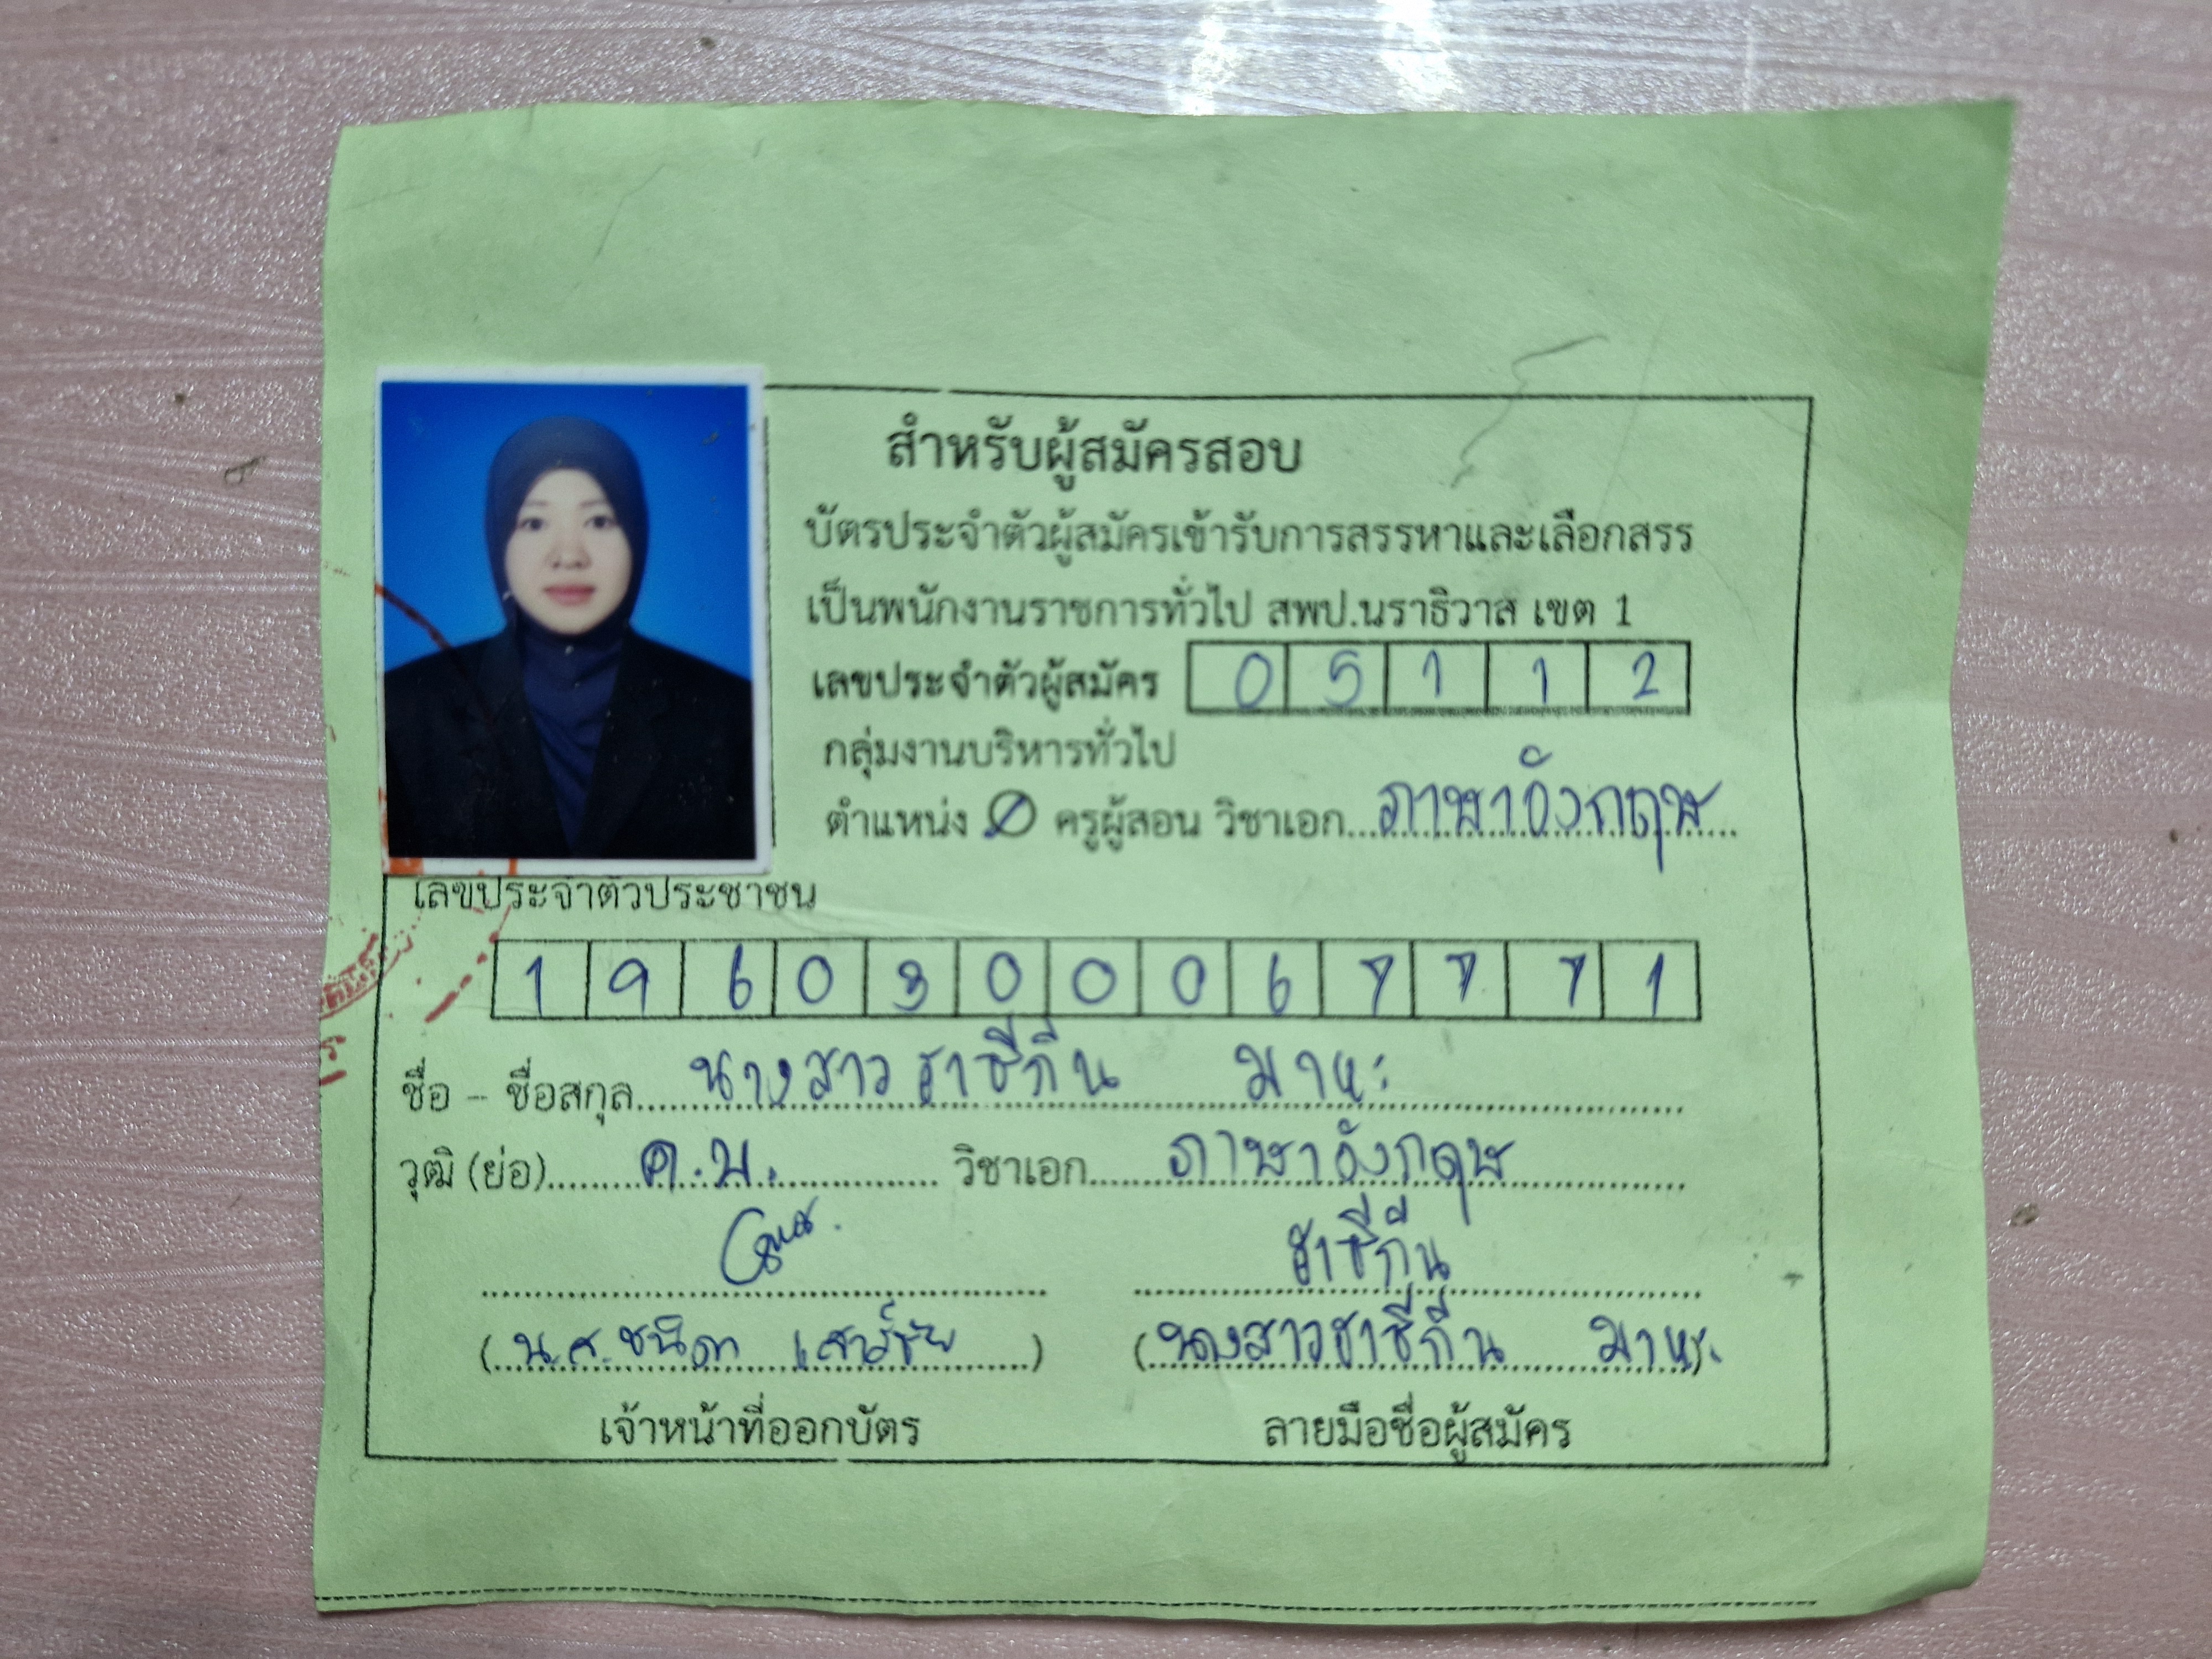 สำหรับผู้สมัครสอบ
บัตรประจำตัวผู้สมัครเข้ารับการสรรหาและเลือกสรร
เป็นพนักงานราชการทั่วไป สพป.นราธิวาส เขต 1
เลขประจำตัวผู้สมัคร 0 5 1 1 2
กลุ่มงานบริหารทั่วไป
ตำแหน่ง ครูผู้สอน วิชาเอก...ภาษาอังกฤษ
เลขประจำตัวประชาชน
1 9 6 0 3 0 0 0 6 7 7 7 1
ชื่อ - ชื่อสกุล...นางสาวฮาซีกีน มาหะ
วุฒิ (ย่อ)...ค.บ. วิชาเอก...ภาษาอังกฤษ
ฮาซีกีน
(น.ส.ชนิดา) (นางสาวฮาซีกีน มาหะ
เจ้าหน้าที่ออกบัตร ลายมือชื่อผู้สมัคร